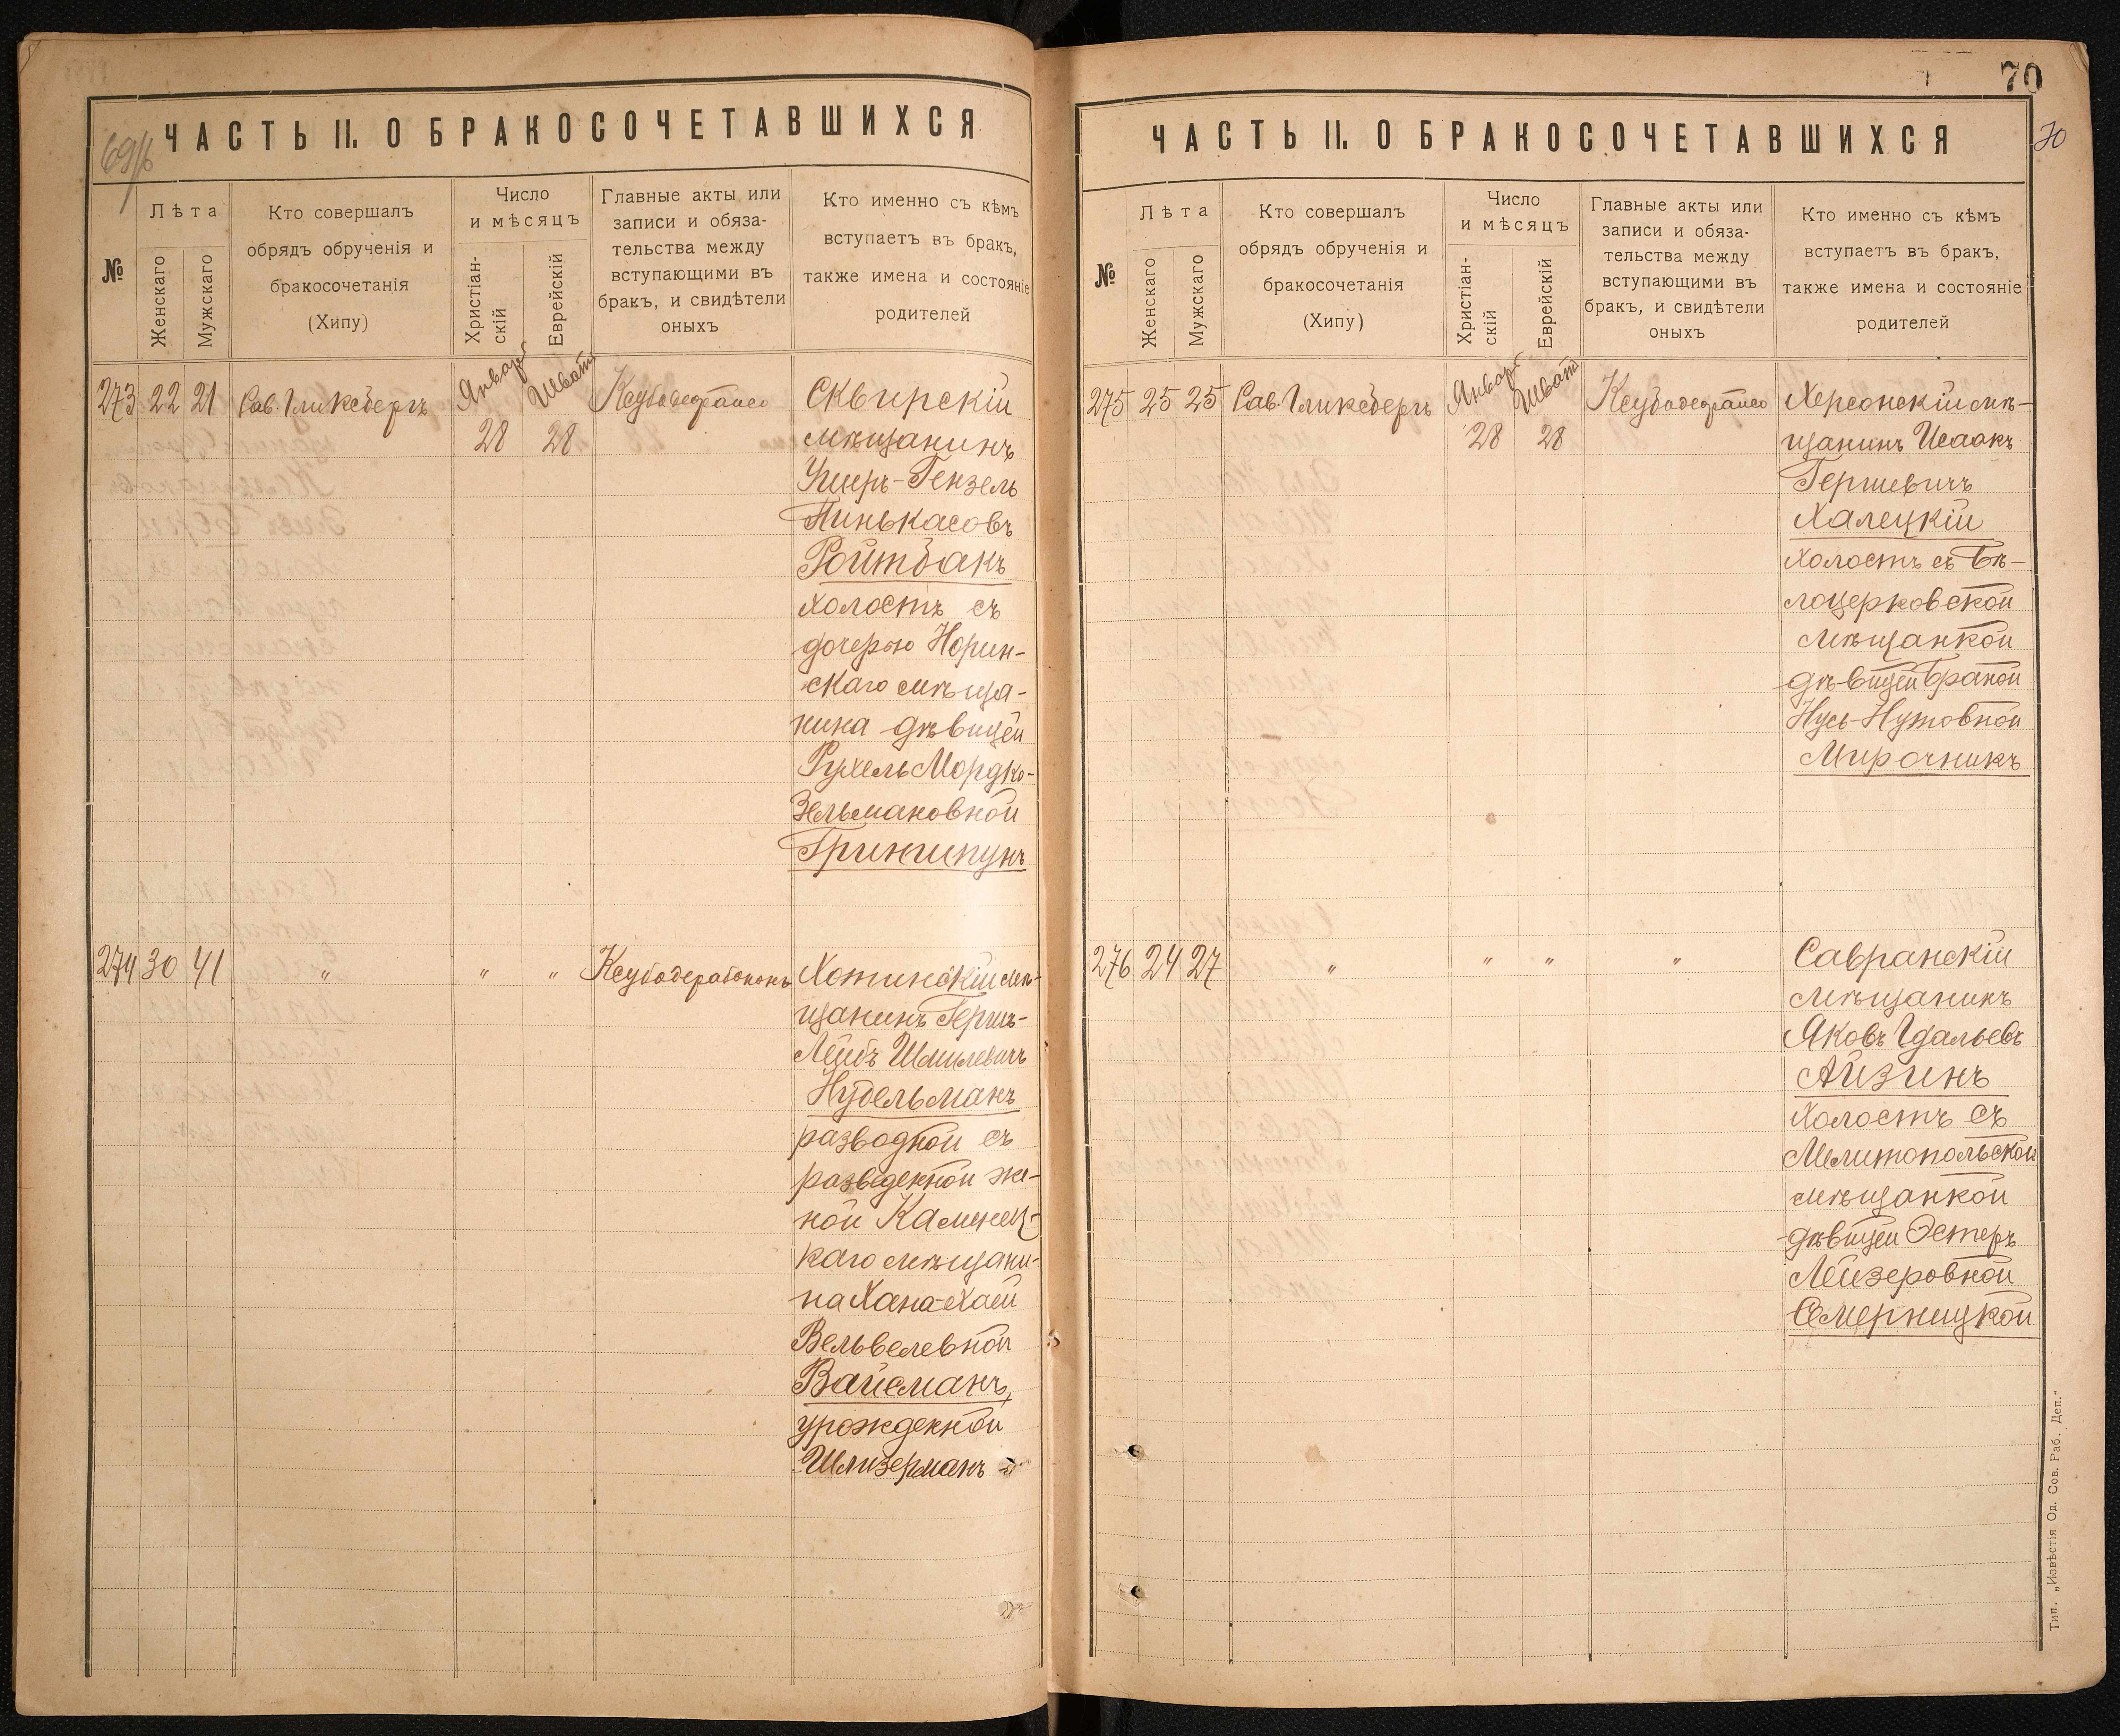 69/б
ЧАСТЬ II. О БРАКОСОЧЕТАВШИХСЯ
№
Лѣта
Женскаго
Мужскаго
Кто совершалъ
обрядъ обрученія и
бракосочетанія
(Хипу)
Число
и мѣсяцъ
Христіан-
скій
Еврейскій
Главные акты или
записи и обяза-
тельства между
вступающими въ
бракъ, и свидѣтели
оныхъ
Кто именно съ кѣмъ
вступаетъ въ бракъ,
также имена и состояніе
родителей
273 22 21 Рав. Гликсбергъ
Январ
28
Шват
28
Сквирскій
мѣщанинъ
Ушеръ-Гензель
Пинькасовъ
Ройтбакъ
холостъ съ
дочерью Норин-
скаго мѣща-
нина дѣвицей
Рухель Мордко-
Зельмановной
Гриншпунъ
274 30 41 " " "
Хотинскій мѣ-
щанинъ Герш-
Лейбъ Шмилевичъ
Нудельманъ
разводной съ
разведенной же-
ной Каменец-
каго мѣщани-
на Хана-Хаей
Вельвелевной
Вайсманъ,
урожденной
Шлизерманъ
70
70
ЧАСТЬ II. О БРАКОСОЧЕТАВШИХСЯ
№
Лѣта
Женскаго
Мужскаго
Кто совершалъ
обрядъ обрученія и
бракосочетанія
(Хипу)
Число
и мѣсяцъ
Христіан-
скій
Еврейскій
Главные акты или
записи и обяза-
тельства между
вступающими въ
бракъ, и свидѣтели
оныхъ
Кто именно съ кѣмъ
вступаетъ въ бракъ,
также имена и состояніе
родителей
275 25 25 Рав. Гликсбергъ
Январ
28
Шват
28
Херсонскій мѣ-
щанинъ Исаакъ
Гершевичъ
Халецкій
холостъ съ Бѣ-
лоцерковской
мѣщанкой
дѣвицей Браной
Нусь-Нутовной
Мирочникъ
276 24 27 " " " "
Савранскій
мѣщанинъ
Яковъ Гдальевъ
Айзинъ
холостъ съ
Мелитопольской
мѣщанкой
дѣвицей Эстеръ
Лейзеровной
Смерницкой
Тип. „Извѣстія Од. Сов. Раб. Деп.“